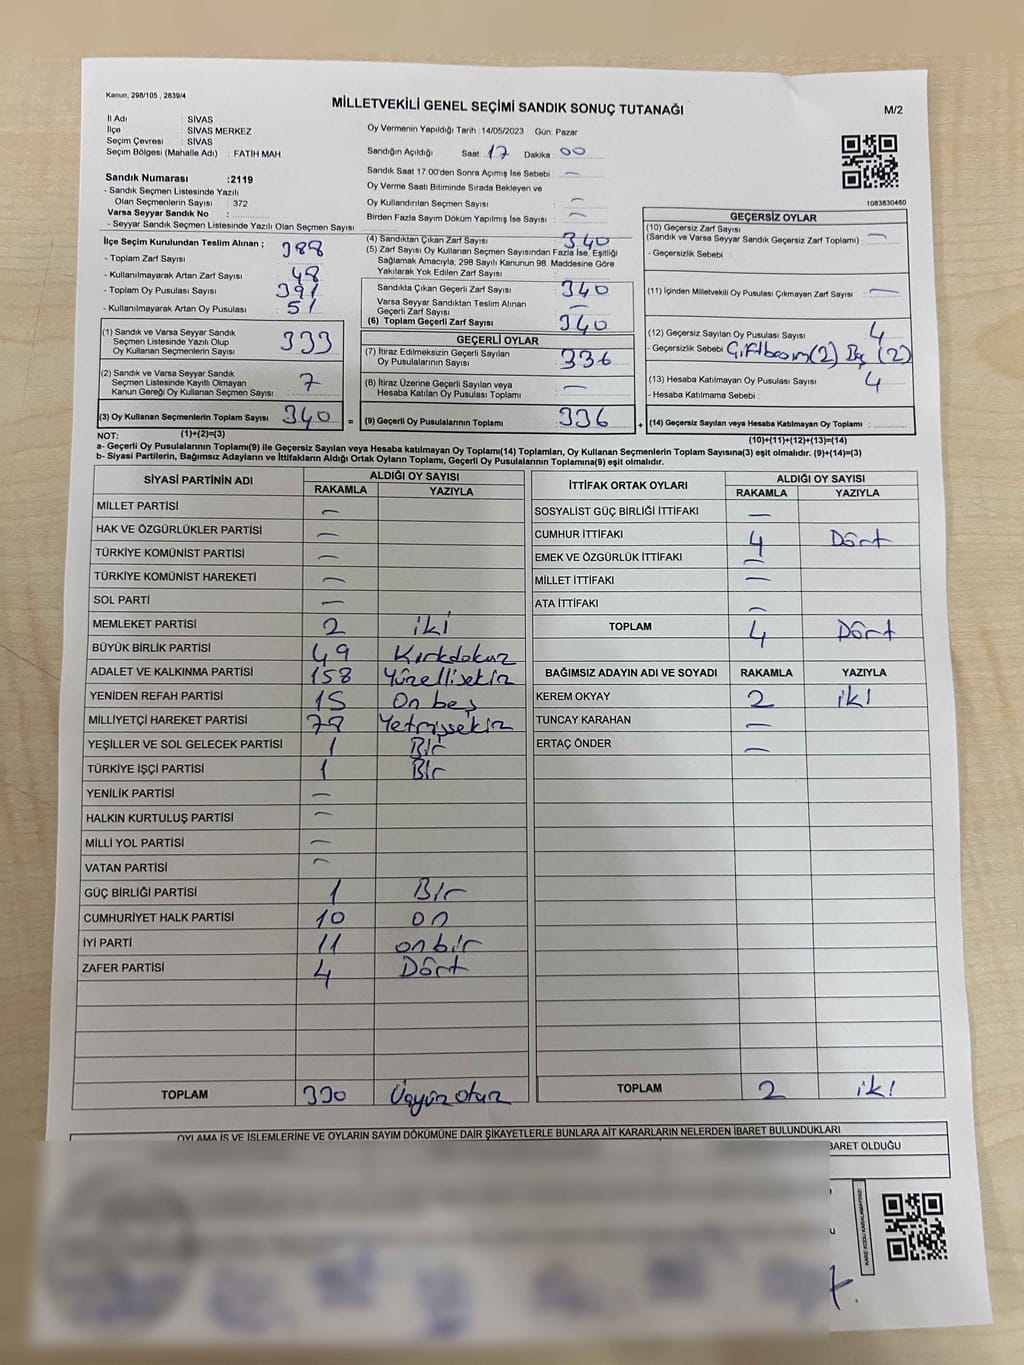 Kanun, 298/105 , 2839/4
MİLLETVEKİLİ GENEL SEÇİMİ SANDIK SONUÇ TUTANAĞI
M/2
İl Adı : SİVAS
İlçe : SİVAS MERKEZ
Seçim Çevresi : SİVAS
Seçim Bölgesi (Mahalle Adı) : FATİH MAH.
Sandık Numarası :2119
- Sandık Seçmen Listesinde Yazılı
Olan Seçmenlerin Sayısı : 372
Varsa Seyyar Sandık No :
- Seyyar Sandık Seçmen Listesinde Yazılı Olan Seçmen Sayısı :
Oy Vermenin Yapıldığı Tarih : 14/05/2023 Gün: Pazar
Sandığın Açıldığı Saat : 17 Dakika : 00
Sandık Saat 17.00'den Sonra Açımış İse Sebebi : —
Oy Verme Saati Bitiminde Sırada Bekleyen ve
Oy Kullandırılan Seçmen Sayısı : —
Birden Fazla Sayım Döküm Yapılmış İse Sayısı : —
1083830480
İlçe Seçim Kurulundan Teslim Alınan ;
- Toplam Zarf Sayısı : 388
- Kullanılmayarak Artan Zarf Sayısı : 48
- Toplam Oy Pusulası Sayısı : 391
- Kullanılmayarak Artan Oy Pusulası : 51
(1) Sandık ve Varsa Seyyar Sandık
Seçmen Listesinde Yazılı Olup
Oy Kullanan Seçmenlerin Sayısı : 333
(2) Sandık ve Varsa Seyyar Sandık
Seçmen Listesinde Kayıtlı Olmayan
Kanun Gereği Oy Kullanan Seçmen Sayısı : 7
(3) Oy Kullanan Seçmenlerin Toplam Sayısı : 340
(1)+(2)=(3)
(4) Sandıktan Çıkan Zarf Sayısı : 340
(5) Zarf Sayısı Oy Kullanan Seçmen Sayısından Fazla İse, Eşitliği
Sağlamak Amacıyla, 298 Sayılı Kanunun 98. Maddesine Göre
Yakılarak Yok Edilen Zarf Sayısı :
Sandıkta Çıkan Geçerli Zarf Sayısı : 340
Varsa Seyyar Sandıktan Teslim Alınan
Geçerli Zarf Sayısı : —
(6) Toplam Geçerli Zarf Sayısı : 340
GEÇERLİ OYLAR
(7) İtiraz Edilmeksizin Geçerli Sayılan
Oy Pusulalarının Sayısı : 336
(8) İtiraz Üzerine Geçerli Sayılan veya
Hesaba Katılan Oy Pusulası Toplamı : —
= (9) Geçerli Oy Pusulalarının Toplamı : 336
GEÇERSİZ OYLAR
(10) Geçersiz Zarf Sayısı
(Sandık ve Varsa Seyyar Sandık Geçersiz Zarf Toplamı) : —
- Geçersizlik Sebebi :
(11) İçinden Milletvekili Oy Pusulası Çıkmayan Zarf Sayısı : —
(12) Geçersiz Sayılan Oy Pusulası Sayısı : 4
- Geçersizlik Sebebi : Çift basım(2) Boş (2)
(13) Hesaba Katılmayan Oy Pusulası Sayısı : 4
- Hesaba Katılmama Sebebi :
+ (14) Geçersiz Sayılan veya Hesaba Katılmayan Oy Toplamı :
(10)+(11)+(12)+(13)=(14)
NOT:
a- Geçerli Oy Pusulalarının Toplamı(9) ile Geçersiz Sayılan veya Hesaba Katılmayan Oy Toplamı(14) Toplamları, Oy Kullanan Seçmenlerin Toplam Sayısına(3) eşit olmalıdır. (9)+(14)=(3)
b- Siyasi Partilerin, Bağımsız Adayların ve İttifakların Aldığı Oyların Toplamı, Geçerli Oy Pusulalarının Toplamına(9) eşit olmalıdır.
SİYASİ PARTİNİN ADI ALDIĞI OY SAYISI
RAKAMLA YAZIYLA
MİLLET PARTİSİ —
HAK VE ÖZGÜRLÜKLER PARTİSİ —
TÜRKİYE KOMÜNİST PARTİSİ —
TÜRKİYE KOMÜNİST HAREKETİ —
SOL PARTİ —
MEMLEKET PARTİSİ 2 iki
BÜYÜK BİRLİK PARTİSİ 49 Kırkdokuz
ADALET VE KALKINMA PARTİSİ 158 Yüzellisekiz
YENİDEN REFAH PARTİSİ 15 On beş
MİLLİYETÇİ HAREKET PARTİSİ 78 Yetmişsekiz
YEŞİLLER VE SOL GELECEK PARTİSİ 1 Bir
TÜRKİYE İŞÇİ PARTİSİ 1 Bir
YENİLİK PARTİSİ —
HALKIN KURTULUŞ PARTİSİ —
MİLLİ YOL PARTİSİ —
VATAN PARTİSİ —
GÜÇ BİRLİĞİ PARTİSİ 1 Bir
CUMHURİYET HALK PARTİSİ 10 on
İYİ PARTİ 11 onbir
ZAFER PARTİSİ 4 Dört
TOPLAM 330 Üçyüz otuz
İTTİFAK ORTAK OYLARI ALDIĞI OY SAYISI
RAKAMLA YAZIYLA
SOSYALİST GÜÇ BİRLİĞİ İTTİFAKI —
CUMHUR İTTİFAKI 4 Dört
EMEK VE ÖZGÜRLÜK İTTİFAKI —
MİLLET İTTİFAKI —
ATA İTTİFAKI —
TOPLAM 4 Dört
BAĞIMSIZ ADAYIN ADI VE SOYADI RAKAMLA YAZIYLA
KEREM OKYAY 2 iki
TUNCAY KARAHAN —
ERTAÇ ÖNDER —
TOPLAM 2 iki
OYLAMA İŞ VE İŞLEMLERİNE VE OYLARIN SAYIM DÖKÜMÜNE DAİR ŞİKAYETLERLE BUNLARA AİT KARARLARIN NELERDEN İBARET BULUNDUKLARI
BARET OLDUĞU
KARE KODU KARALAMAYINIZ!